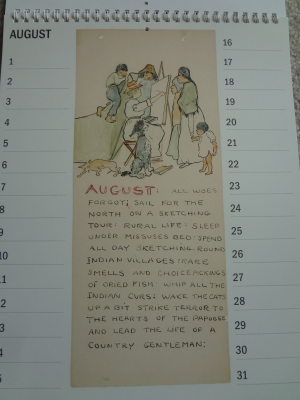 AUGUST
1
2
3
4
5
6
7
8
9
10
11
12
13
14
16
17
18
19
20
21
22
23
24
25
26
27
28
29
30
31
AUGUST: ALL WOES
FORGOT; SAIL FOR THE
NORTH ON A SKETCHING
TOUR: RURAL LIFE: SLEEP
UNDER MISSUSES BED: SPEND
ALL DAY SKETCHING ROUND
INDIAN VILLAGES: RARE
SMELLS AND CHOICE PICKINGS
OF DRIED FISH: WHIP ALL THE
INDIAN CURS: WAKE THE CATS
UP A BIT STRIKE TERROR TO
THE HEARTS OF THE PAPOOSE
AND LEAD THE LIFE OF A
COUNTRY GENTLEMAN: